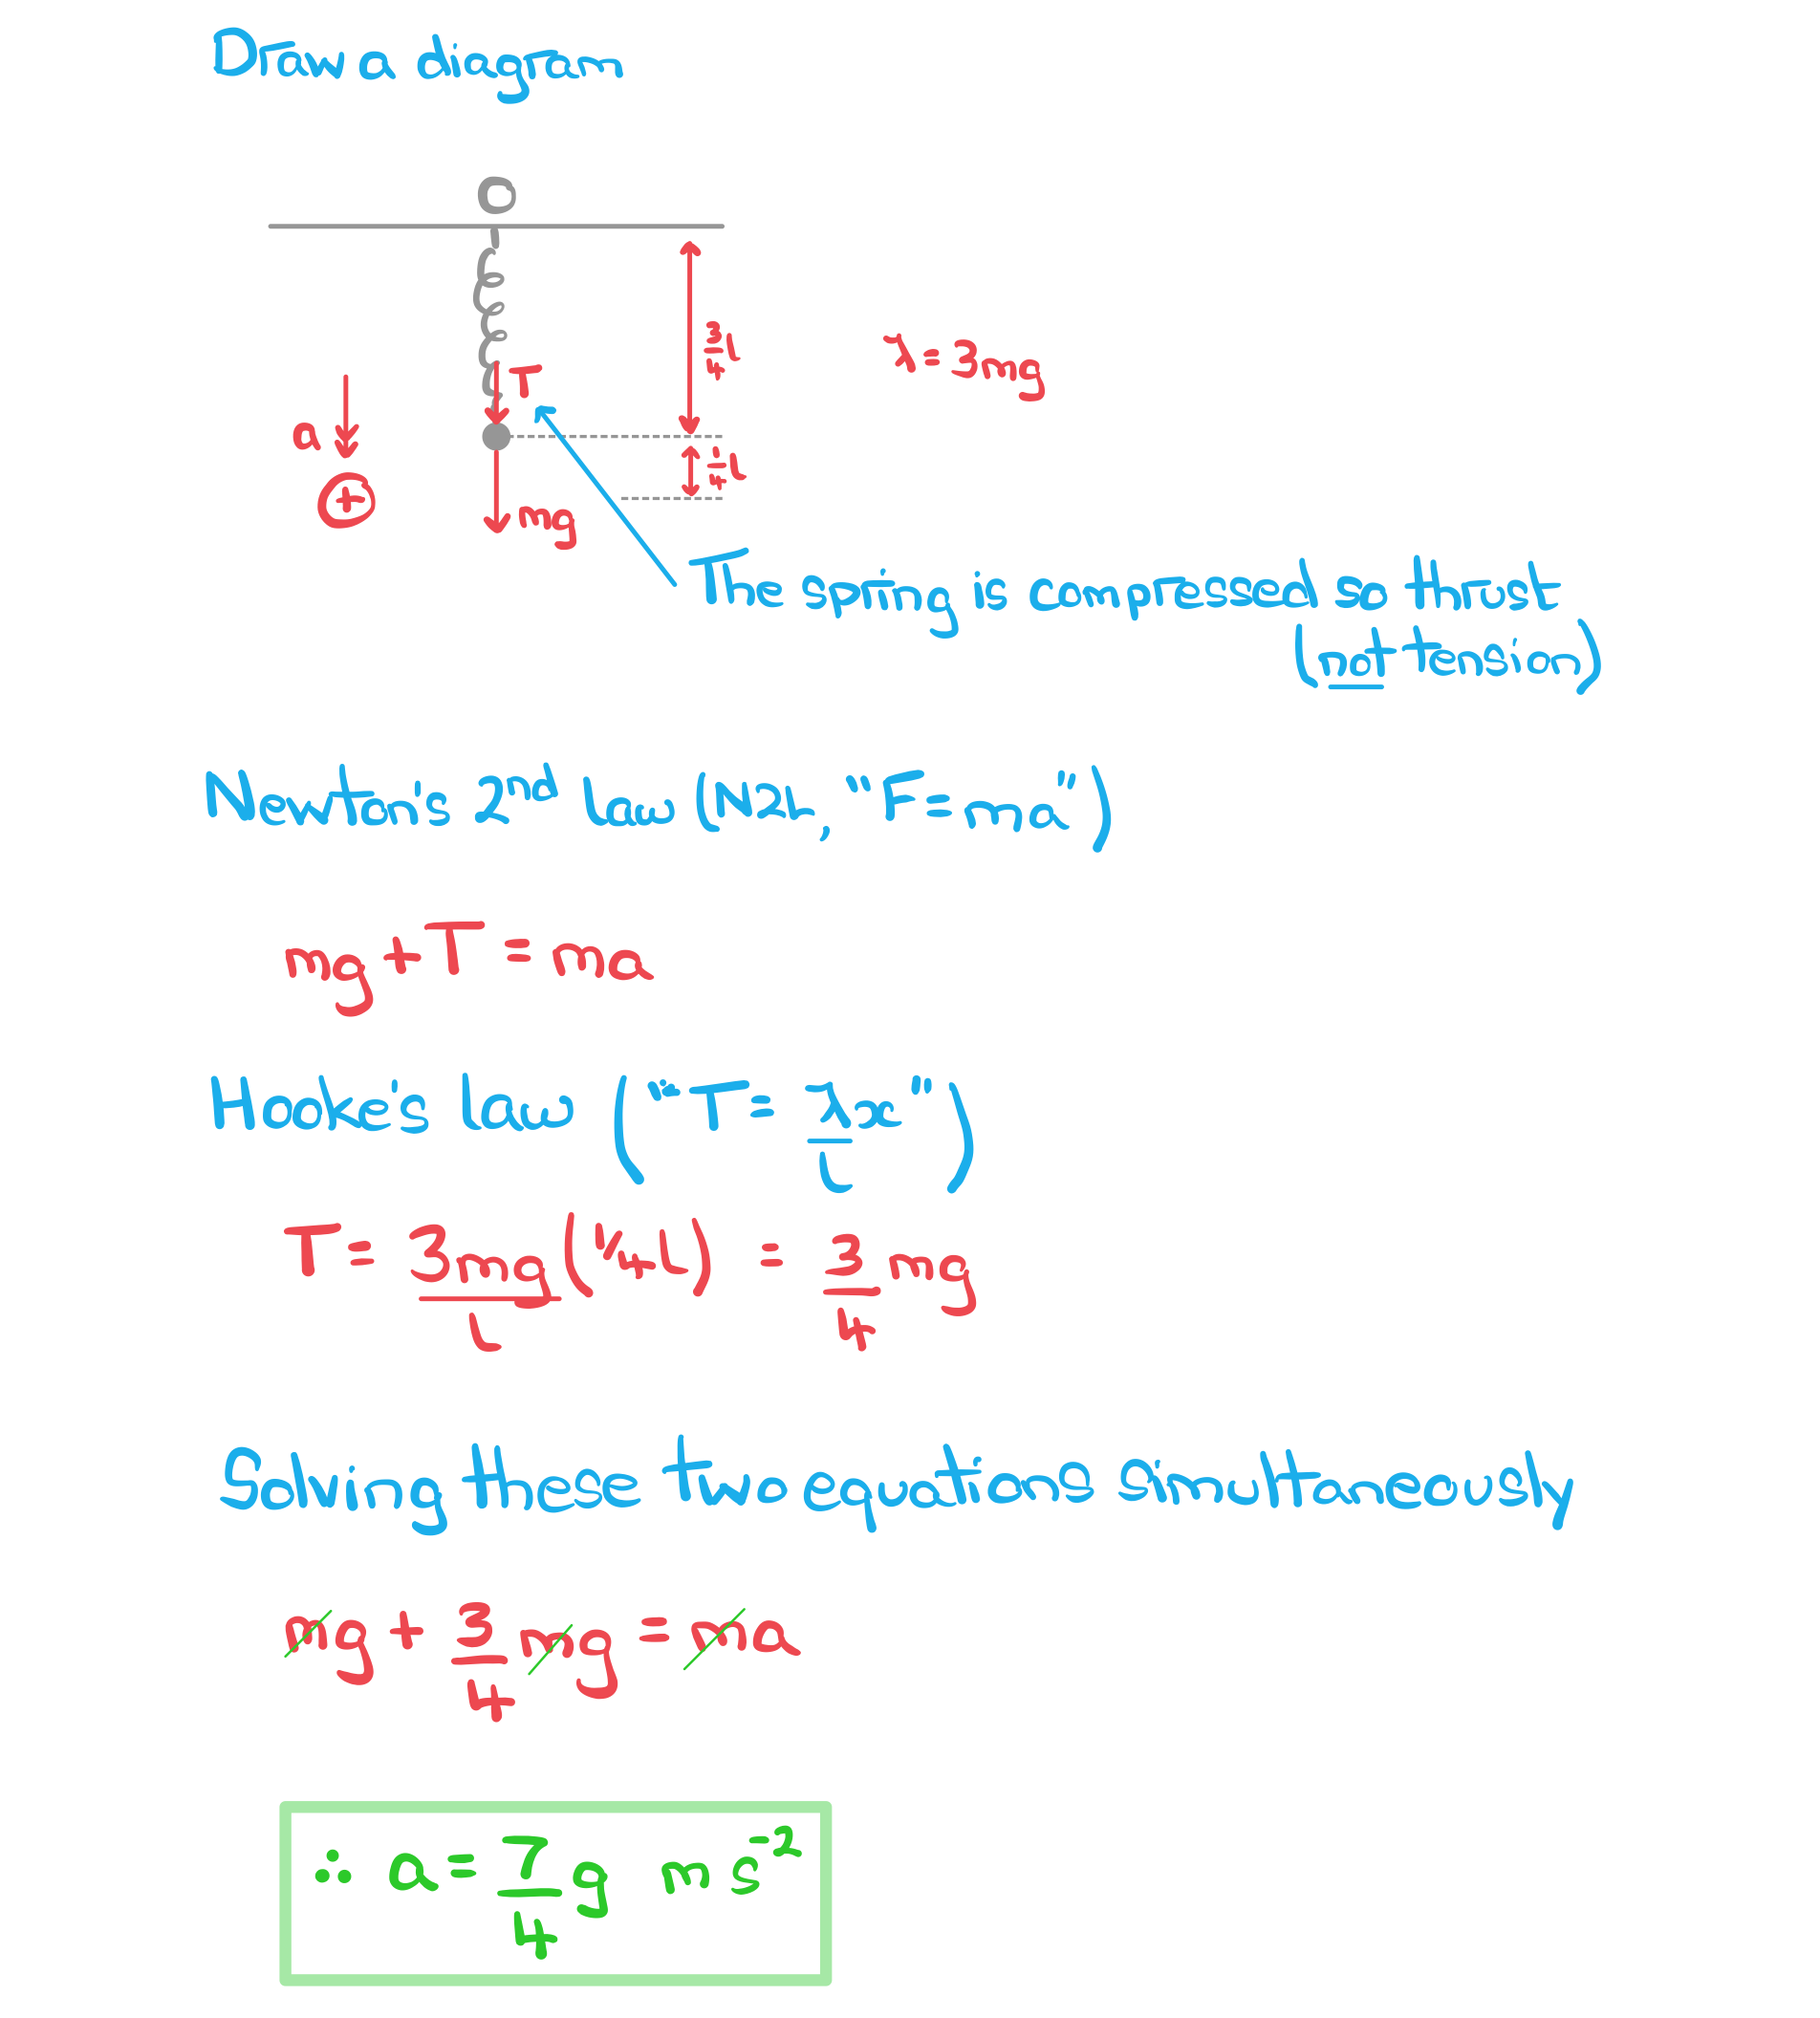 Draw a diagram
O
T
a
+
mg
3/4 L
1/4 L
λ = 3mg
The spring is compressed so thrust
(not tension)
Newton's 2nd law (N2L, "F = ma")
mg + T = ma
Hooke's law ( "T = λx/L" )
T = 3mg/L (1/4 L) = 3/4 mg
Solving these two equations simultaneously
mg + 3/4 mg = ma
∴ a = 7/4 g m s⁻²